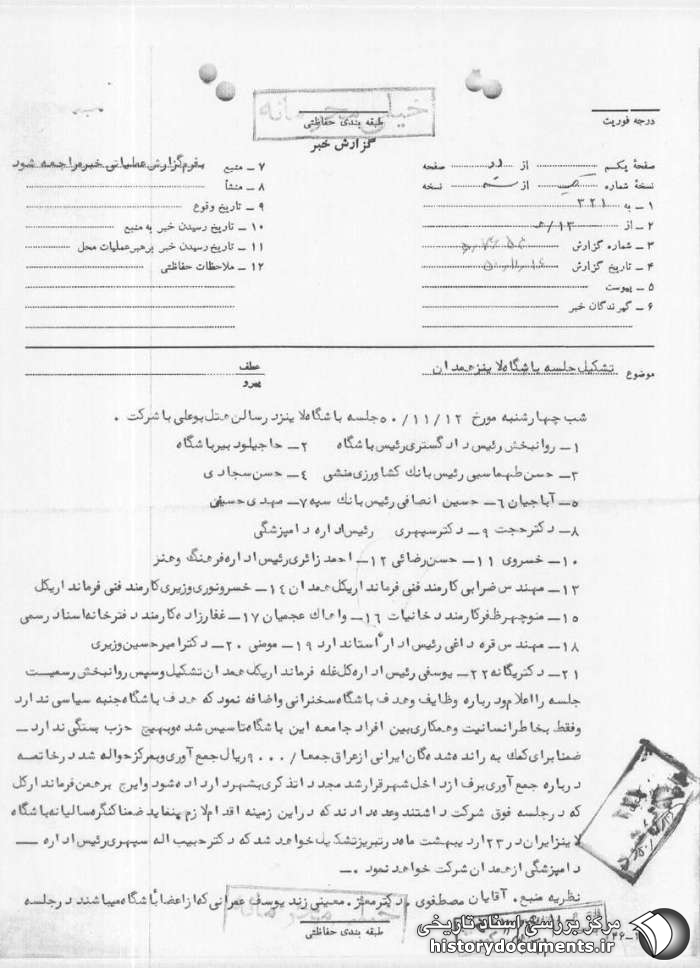 خیلی محرمانه
طبقه بندی حفاظتی
گزارش خبر
درجه فوریت
صفحهٔ یکم از دو صفحه
نسخهٔ شماره از نسخه
۱ – به ۳۲۱
۲ – از ۱۳/ه
۳ – شماره گزارش
۴ – تاریخ گزارش
۵ – پیوست
۶ – گیرندگان خبر
۷ – منبع بفرم گزارش عملیاتی خبر مراجعه شود
۸ – منشأ
۹ – تاریخ وقوع
۱۰ – تاریخ رسیدن خبر به منبع
۱۱ – تاریخ رسیدن خبر برهبر عملیات محل
۱۲ – ملاحظات حفاظتی
موضوع تشکیل جلسه باشگاه لاینز همدان
عطف
پیرو
شب چهارشنبه مورخ ۵۰/۱۱/۱۲ جلسه باشگاه لاینز در سالن هتل بوعلی با شرکت .
۱– روانبخش رئیس دادگستری رئیس باشگاه ۲– حاجیلو دبیر باشگاه
۳– حسن طهماسبی رئیس بانک کشاورزی منشی ۴– حسن سجادی
۵– آباجیان ۶– حسین انصافی رئیس بانک سپه ۷– مهدی حسیفی
۸– دکتر حجت ۹– دکتر سپهری رئیس اداره دامپزشگی
۱۰– خسروی ۱۱– حسن رضائی ۱۲– احمد زائری رئیس اداره فرهنگ و هنر
۱۳– مهندس ضرابی کارمند فنی فرمانداریکل همدان ۱۴– خسرو نوری وزیری کارمند فنی فرمانداریکل
۱۵– منوچهر ظفر کارمند دخانیات ۱۶– واهاک عجمیان ۱۷– غفارزاده کارمند دفترخانه اسناد رسمی
۱۸– مهندس قره داغی رئیس اداره استاندارد ۱۹– مومنی ۲۰– دکتر امیر حسین وزیری
۲۱– دکتر یگانه ۲۲– یوسفی رئیس اداره کل غله فرمانداریکل همدان تشکیل و سپس روانبخش رسمیت
جلسه را اعلام و درباره وظایف و هدف باشگاه سخنرانی و اضافه نمود که هدف باشگاه جنبه سیاسی ندارد
و فقط بخاطر انسانیت و همکاری بین افراد جامعه این باشگاه تاسیس شده و بهیچ حزب بستگی ندارد –
ضمنا برای کمک به رانده شده گان ایرانی از عراق جمعا ۹۰۰۰/ ریال جمع آوری و بمرکز حواله شد در خاتمه
درباره جمع آوری برف از داخل شهر قرار شد مجددا تذکری بشهردار داده شود و ایرج برهمن فرماندارکل
که در جلسه فوق شرکت داشتند وعده دادند که در این زمینه اقدام لازم بنماید ضمنا کنگره سالیانه باشگاه
لاینز ایران در ۲۳ اردیبهشت ماه در تبریز تشکیل خواهد شد که دکتر حبیب اله سپهری رئیس اداره –
دامپزشگی از همدان شرکت خواهد نمود . –
نظریه منبع . آقایان مصطفوی . دکتر معز . معینی زند یوسف عمرانی که از اعضا باشگاه میباشند در جلسه
خیلی محرمانه
طبقه بندی حفاظتی
مرکز بررسی اسناد تاریخی
historydocuments.ir